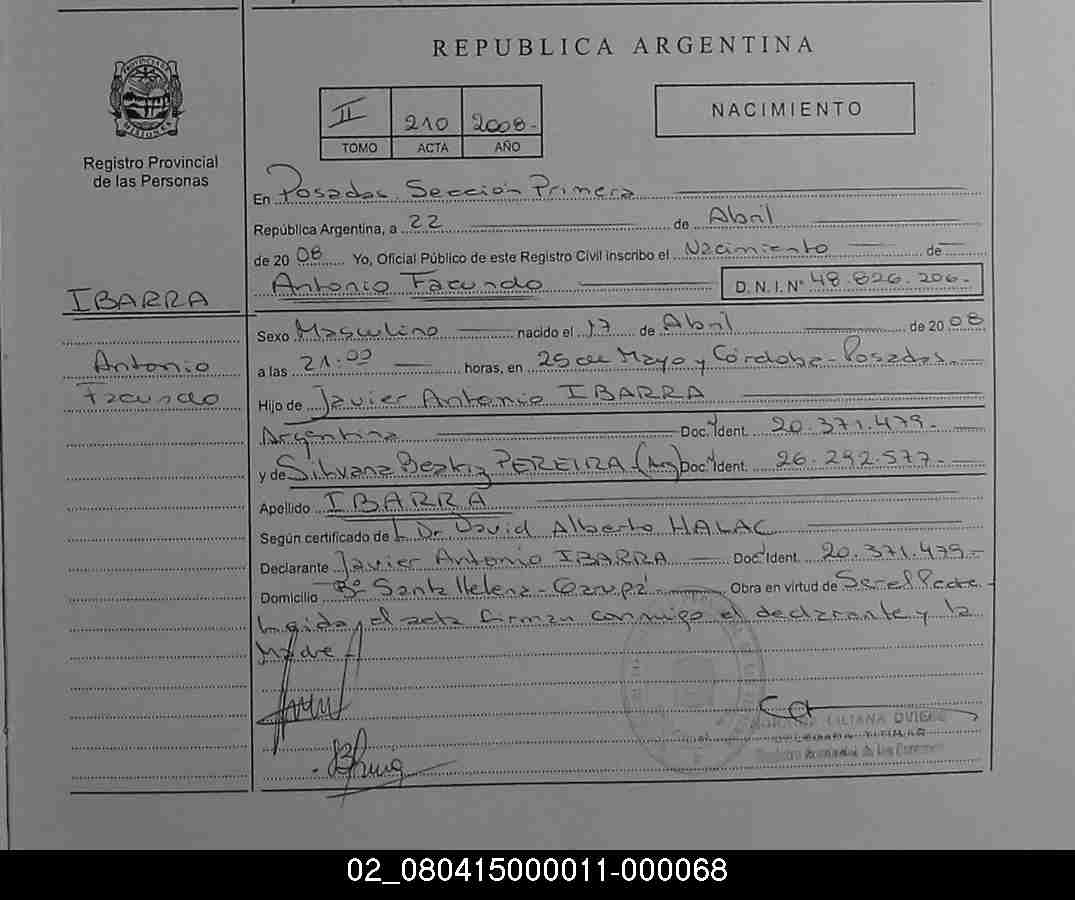 REPUBLICA ARGENTINA
PROVINCIA DE MISIONES
Registro Provincial
de las Personas
II 210 2008.-
TOMO ACTA AÑO
NACIMIENTO
En Posadas, Sección Primera
República Argentina, a 22 de Abril
de 20 08 Yo, Oficial Público de este Registro Civil inscribo el Nacimiento de
Antonio Facundo D.N.I.Nº 48.826.206.-
IBARRA
Antonio
Facundo
Sexo Masculino nacido el 17 de Abril de 20 08
a las 21:00 horas, en 25 de Mayo y Córdoba - Posadas.-
Hijo de Javier Antonio IBARRA
Argentina Doc. Ident. 20.371.479.-
y de Silvana Beatriz PEREIRA (Arg) Doc. Ident. 26.292.577.-
Apellido IBARRA
Según certificado de Dr David Alberto HALAC
Declarante Javier Antonio IBARRA Doc. Ident. 20.371.479.-
Domicilio Bº Santa Helena - Garupá Obra en virtud de Ser el Padre.-
Leída el acta firman conmigo el declarante y la
Madre.-
LILIANA
DELEGADA TITULAR
Registro Provincial de las Personas
02_080415000011-000068